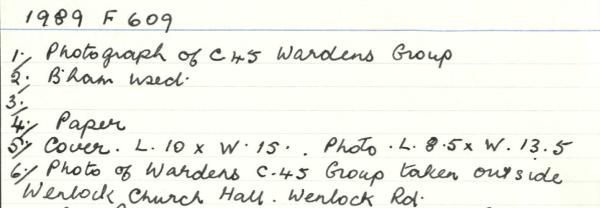 1989 F 609
1/. Photograph of C45 Wardens Group
2/. B'ham used.
3/.
4/. Paper
5/. Cover. L. 10 x W. 15. . Photo . L. 8.5 x W. 13.5
6/. Photo of Wardens C.45 Group taken outside
Wenlock Church Hall. Wenlock Rd.